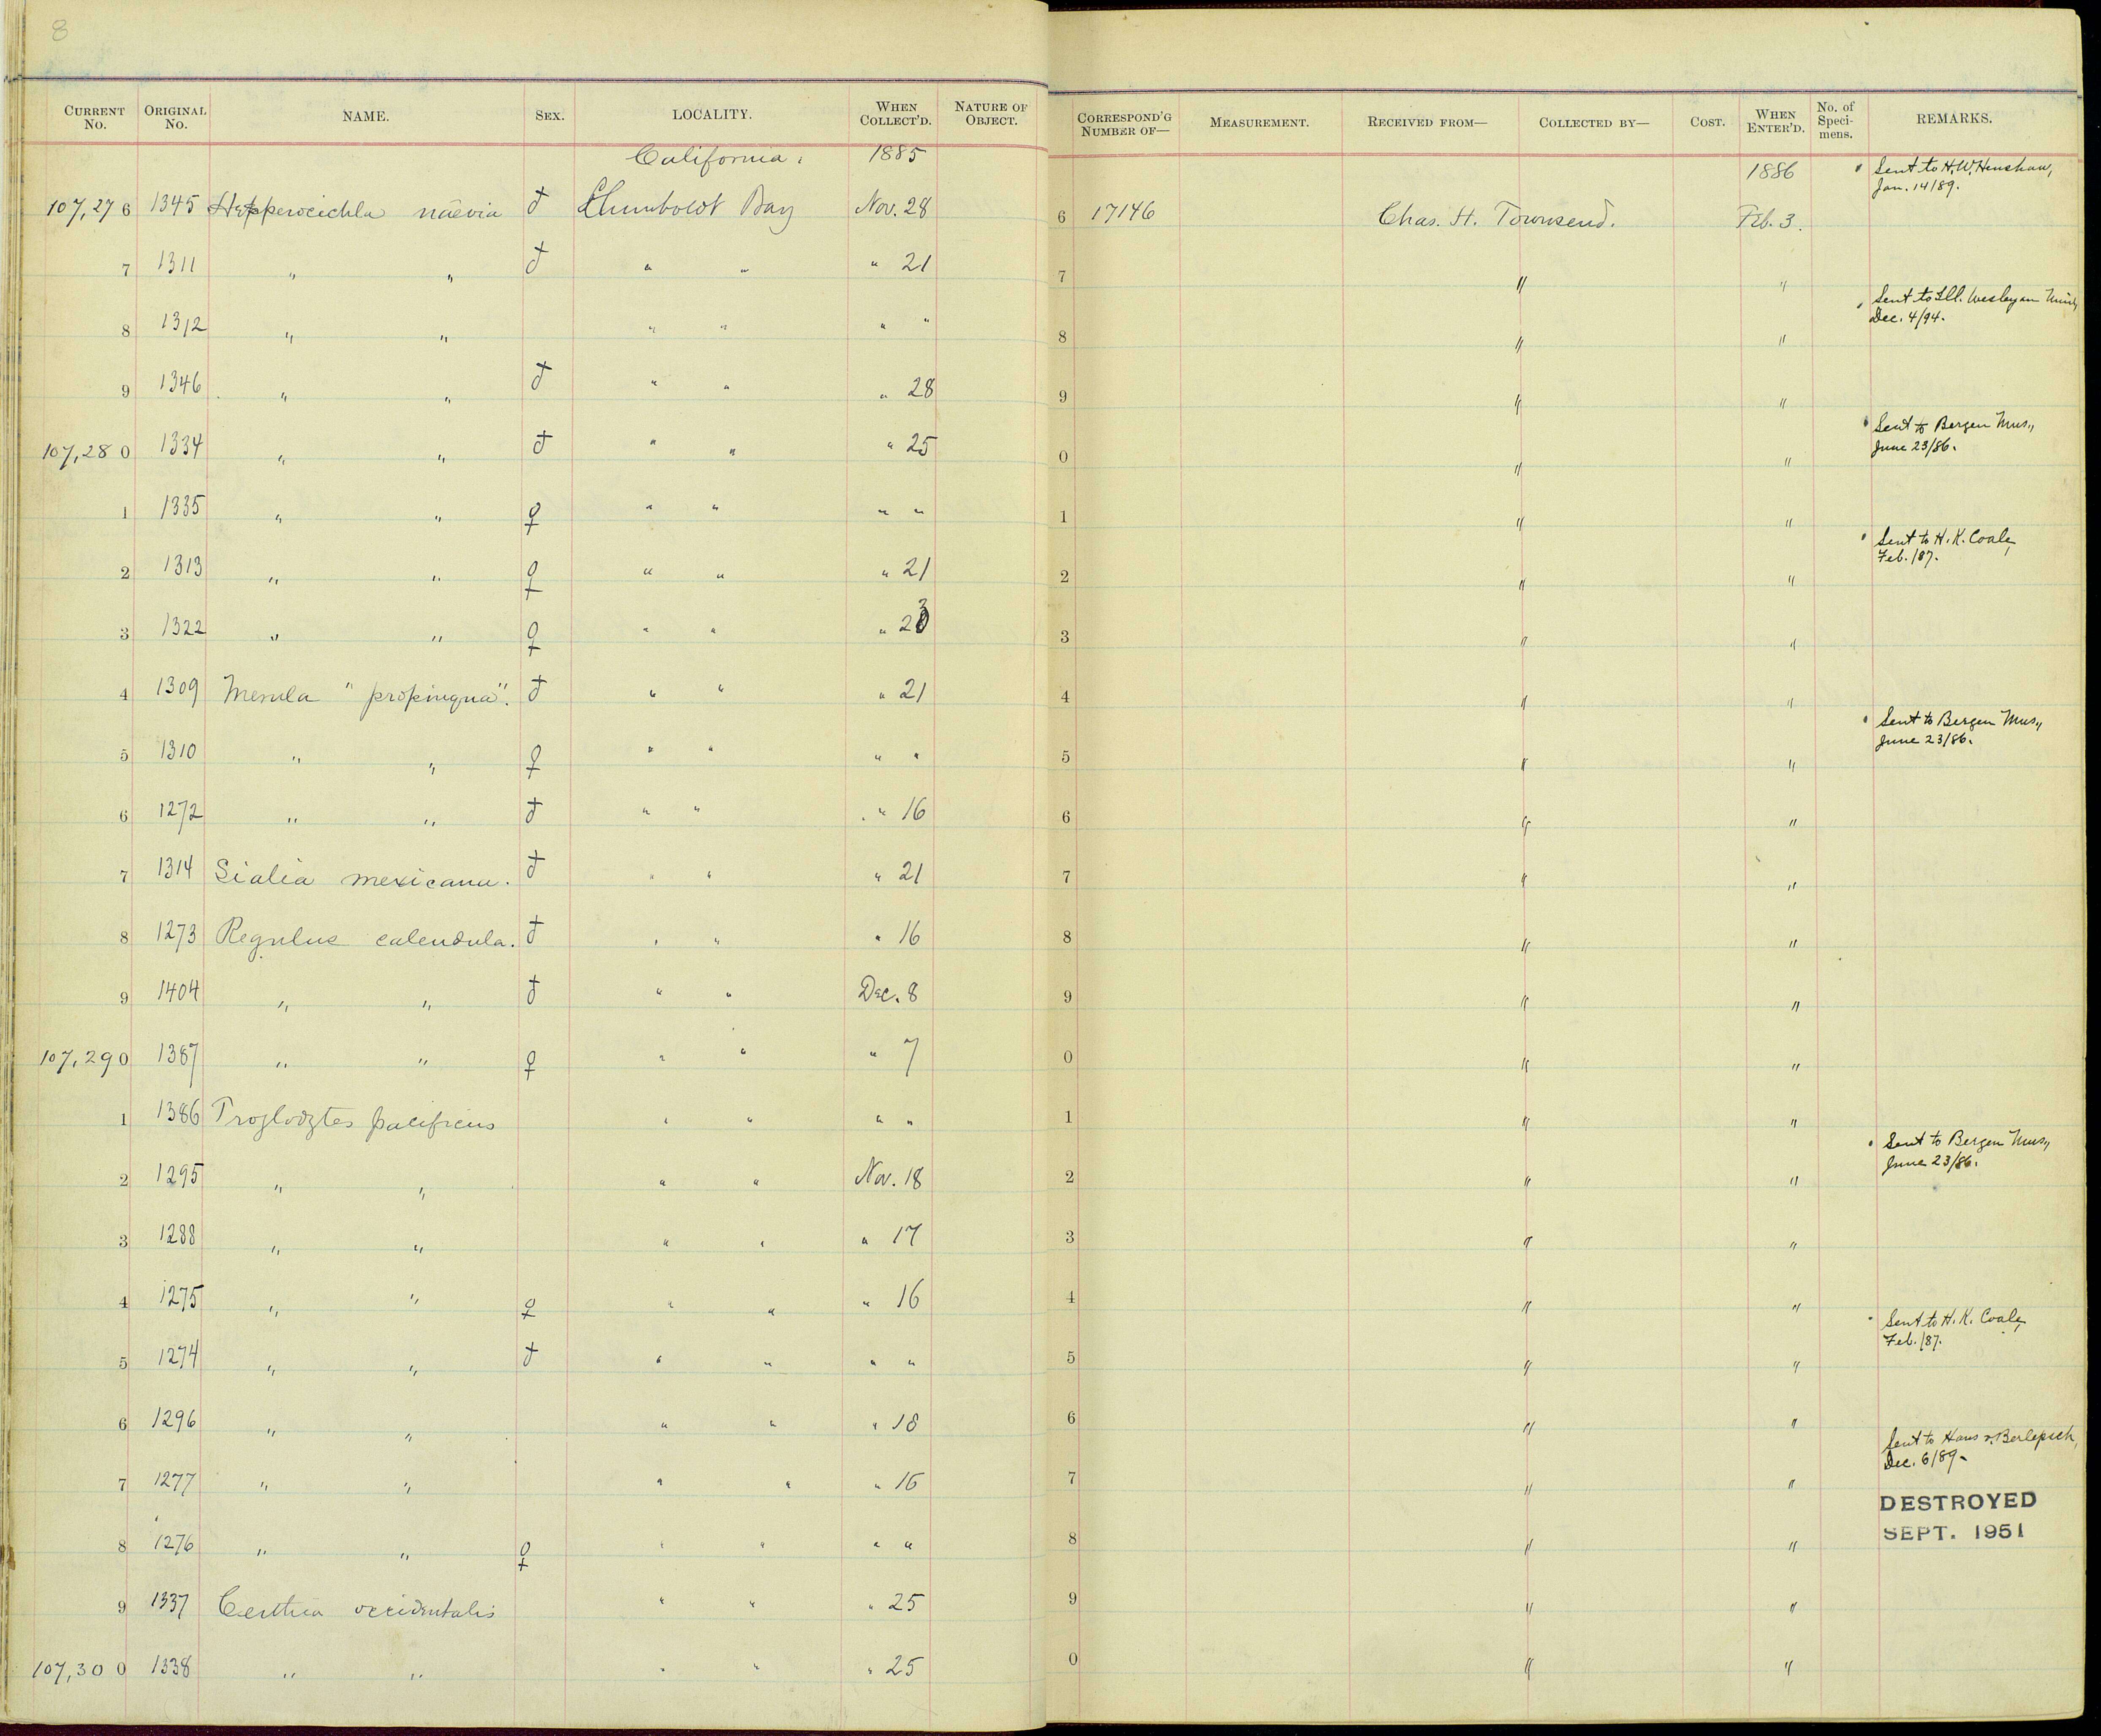 8
CURRENT No. ORIGINAL No. NAME. SEX. LOCALITY. WHEN COLLECT'D. NATURE OF OBJECT. CORRESPOND'G NUMBER OF— MEASUREMENT. RECEIVED FROM— COLLECTED BY— COST. WHEN ENTER'D. No. of Speci- mens. REMARKS.
California. 1885 1886 Sent to H. W. Henshaw, Jan. 14/89.
107,276 1345 Hesperocichla naevia ♂ Humboldt Bay Nov. 28 6 17146 Chas. H. Townsend. Feb. 3.
7 1311 " " ♂ " " " 21 7 " "
8 1312 " " " " " " 8 " " Sent to Ill. Wesleyan Univ., Dec. 4/94.
9 1346 " " ♂ " " " 28 9 " "
107,280 1334 " " ♂ " " " 25 0 " " Sent to Bergen Mus., June 23/86.
1 1335 " " ♀ " " " " 1 " "
2 1313 " " ♀ " " " 21 2 " " Sent to H. K. Coale, Feb. /87.
3 1322 " " ♀ " " " 23 3 " "
4 1309 Merula "propinqua". ♂ " " " 21 4 " "
5 1310 " " ♀ " " " " 5 " " Sent to Bergen Mus., June 23/86.
6 1272 " " ♂ " " " 16 6 " "
7 1314 Sialia mexicana. ♂ " " " 21 7 " "
8 1273 Regulus calendula. ♂ " " " 16 8 " "
9 1404 " " ♂ " " Dec. 8 9 " "
107,290 1387 " " ♀ " " " 7 0 " "
1 1386 Troglodytes pacificus " " " " 1 " "
2 1295 " " " " Nov. 18 2 " " Sent to Bergen Mus., June 23/86.
3 1288 " " " " " 17 3 " "
4 1275 " " ♀ " " " 16 4 " "
5 1274 " " ♂ " " " " 5 " " Sent to H. K. Coale, Feb. /87.
6 1296 " " " " " 18 6 " "
7 1277 " " " " " 16 7 " " Sent to Hans v. Berlepsch, Dec. 6/89.
8 1276 " " ♀ " " " " 8 " " DESTROYED SEPT. 1951
9 1337 Certhia occidentalis " " " 25 9 " "
107,300 1338 " " " " " 25 0 " "